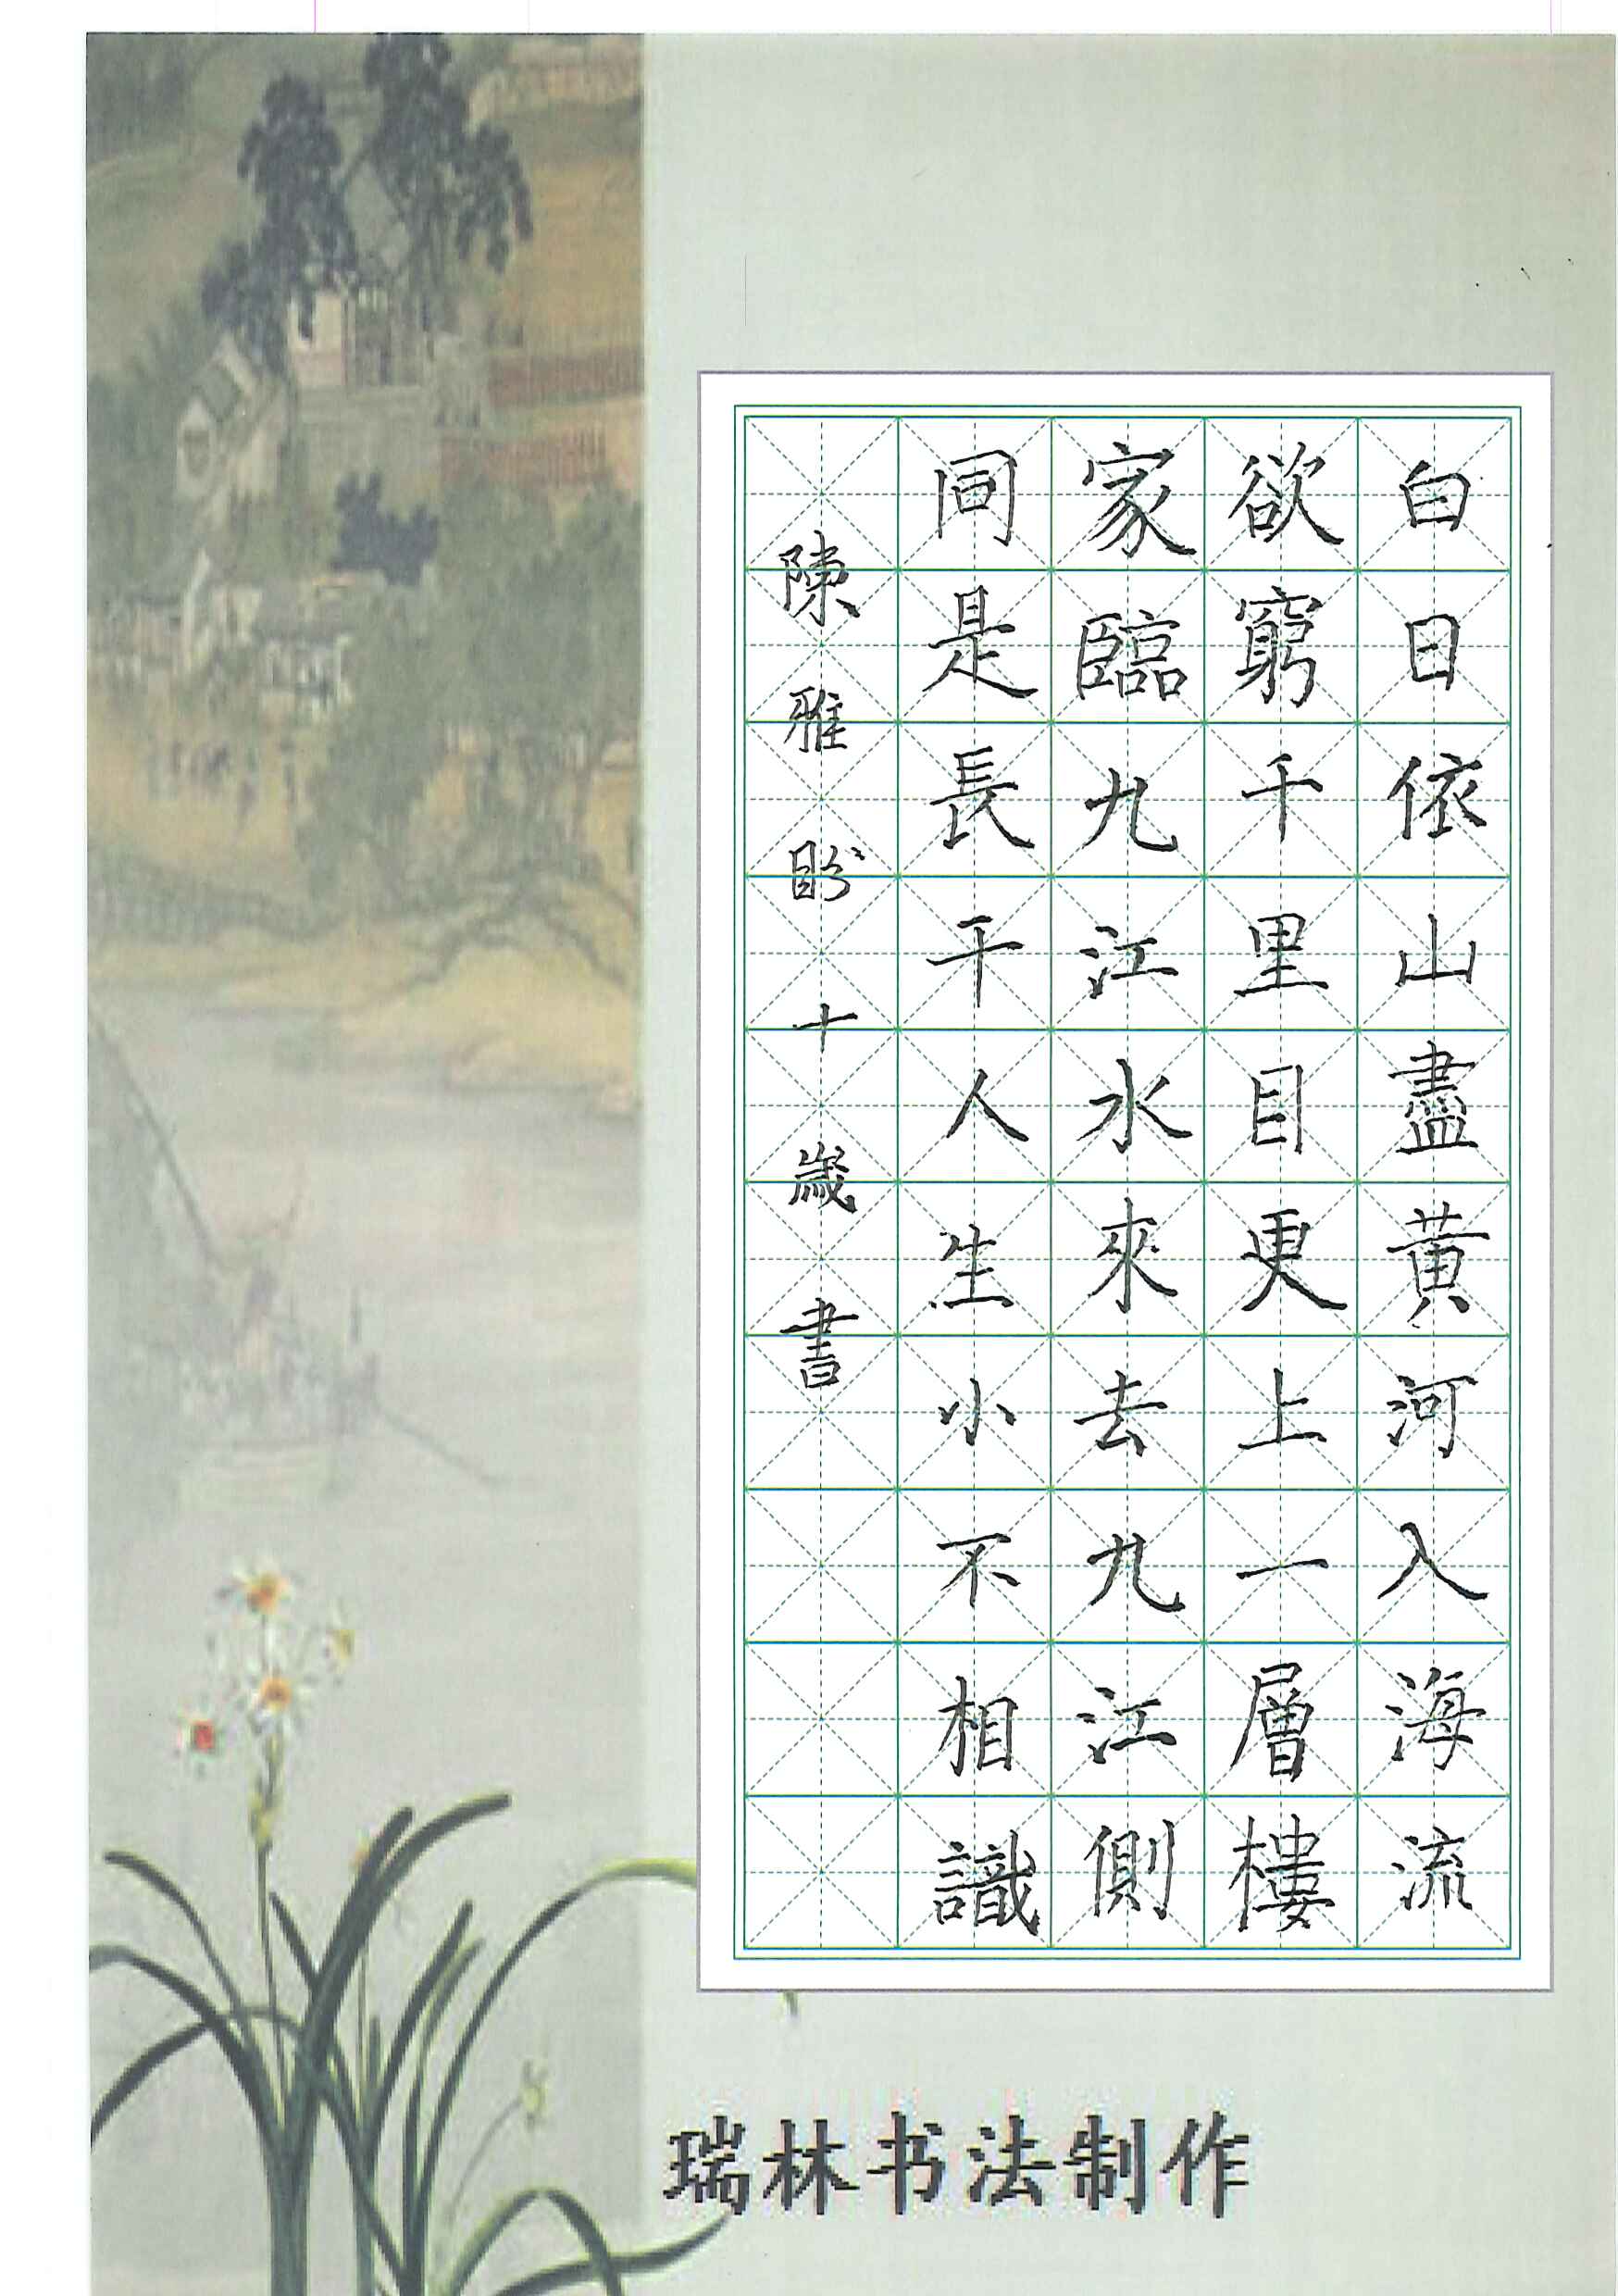 白日依山盡黃河入海流
欲窮千里目更上一層樓
家臨九江水來去九江側
同是長干人生小不相識
陳雅盼十歲書
瑞林书法制作